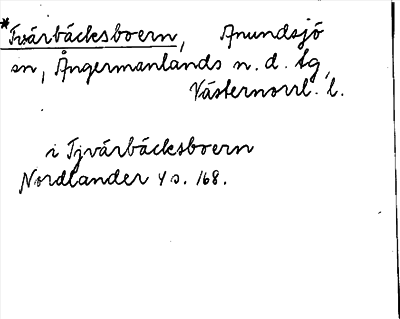 *Tvärbäcksboern, Anundsjö
sn, Ångermanlands n. d. tg,
Västernorrl. l.
i Tjvärbäcksboern
Nordlander 4 s. 168.